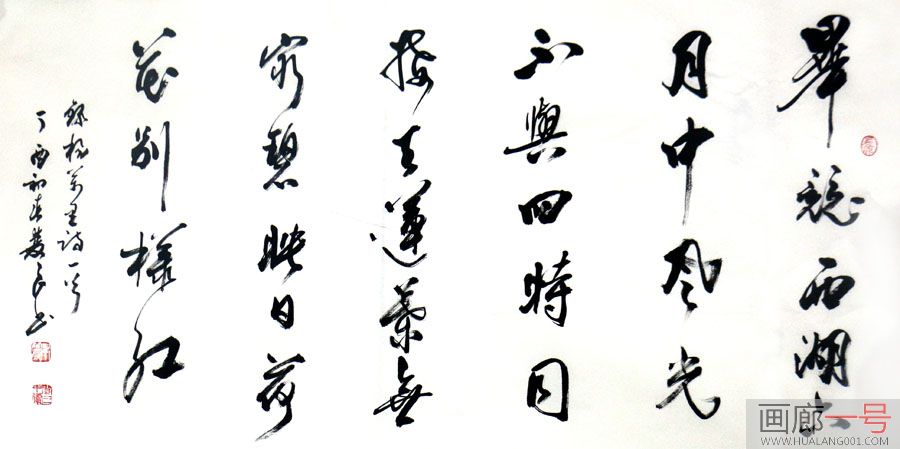 畢竟西湖六
月中风光
不與四時同
接天蓮葉無
窮碧映日荷
花别樣红
錄楊萬里詩一首
丁酉初春良书
画廊一号
WWW.HUALANG001.COM